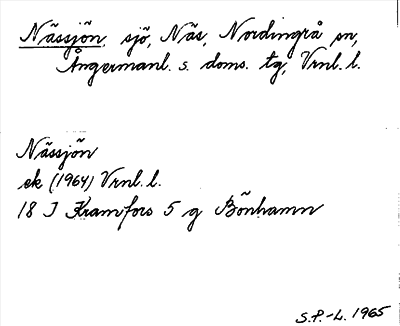 Nässjön, sjö, Näs, Nordingrå sn,
Ångermanl. s. doms. tg, Vrnl. l.
Nässjön
ek (1964) Vrnl. l.
18 I Kramfors 5 g Bönhamn
S.P.-L. 1965